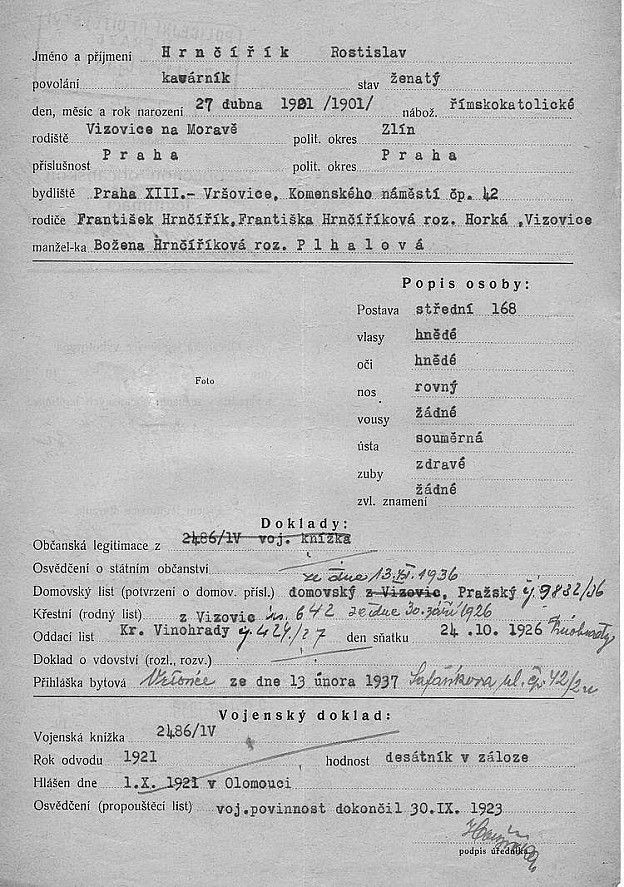 Jméno a příjmení Hrnčířík Rostislav
povolání kavárník stav ženatý
den, měsíc a rok narození 27 dubna 1901 /1901/ nábož. římskokatolické
rodiště Vizovice na Moravě polit. okres Zlín
příslušnost Praha polit. okres Praha
bydliště Praha XIII.- Vršovice, Komenského náměstí čp. 42
rodiče František Hrnčířík,Františka Hrnčíříková roz. Horká ,Vizovice
manžel-ka Božena Hrnčíříková roz. Plhalová
Popis osoby:
Postava střední 168
vlasy hnědé
oči hnědé
Foto
nos rovný
vousy žádné
ústa souměrná
zuby zdravé
zvl. znamení žádné
Doklady:
Občanská legitimace z 2486/1V voj. knížka
Osvědčení o státním občanství
ze dne 13.XI.1936
Domovský list (potvrzení o domov. přísl.) domovský z Vizovic, Pražský č. 9832/36
Křestní (rodný list) z Vizovic čís. 642 ze dne 30. září 1926
Oddací list Kr. Vinohrady č. 424/27 den sňatku 24 .10. 1926 Vinohrady
Doklad o vdovství (rozl., rozv.)
Přihláška bytová ze dne 13 února 1937 Šafaříkova ul. čp. 42/2
Vojenský doklad:
Vojenská knížka 2486/1V
Rok odvodu 1921 hodnost desátník v záloze
Hlášen dne 1.X. 1921 v Olomouci
Osvědčení (propouštěcí list) voj.povinnost dokončil 30.IX. 1923
podpis úředníka